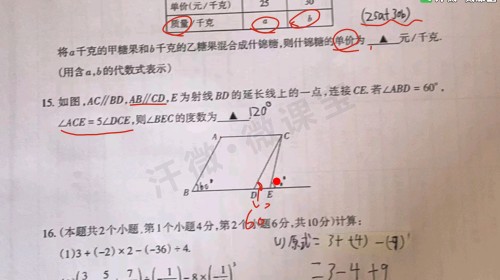 单价(元/千克) 25 30
质量/千克 a b
(25a+30b)
将a千克的甲糖果和b千克的乙糖果混合成什锦糖,则什锦糖的单价为 ▲ 元/千克.
(用含a,b的代数式表示)
15. 如图,AC//BD,AB//CD,E为射线BD的延长线上的一点,连接CE.若∠ABD=60°,
∠ACE=5∠DCE,则∠BEC的度数为 ▲ 120°
A C
B D E
60°
汗微·微课堂
16. (本题共2个小题,第1个小题4分,第2个小题6分,共10分)计算:
(1)3+(-2)×2-(-36)÷4.
(1)原式= 3+(-4)-(-9)
=3-4+9